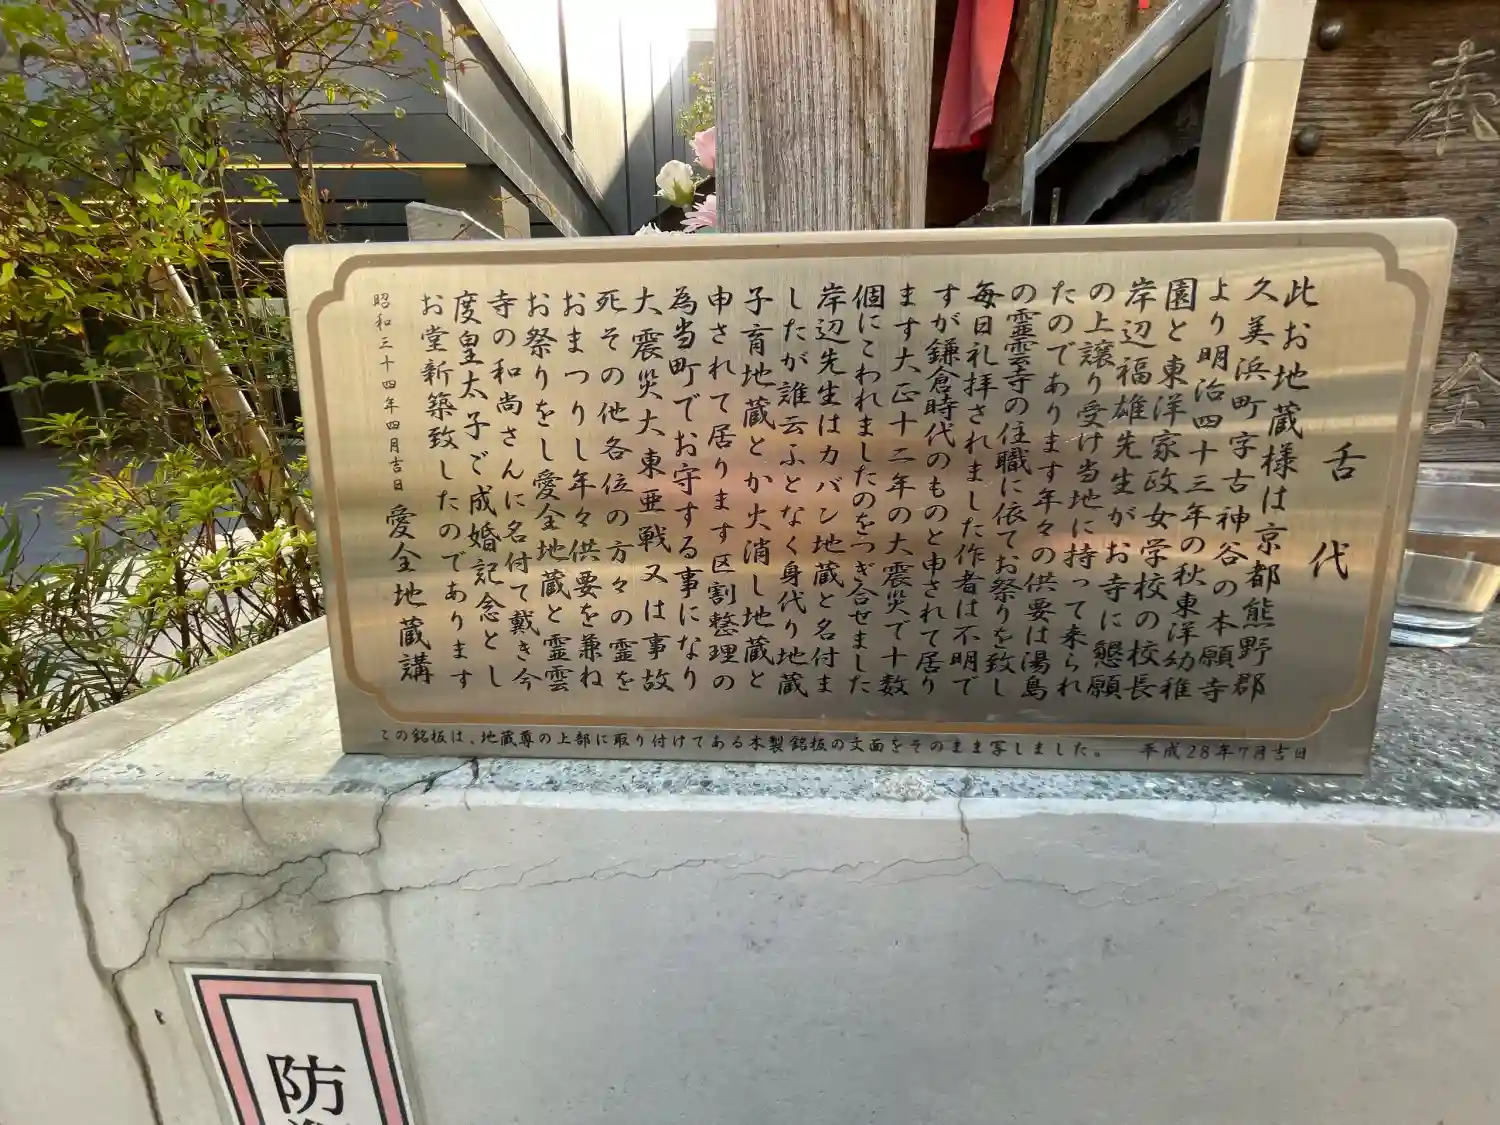 舌代
此お地蔵様は京都熊野郡
久美浜町字古神谷の本願寺
より明治四十三年の秋東洋幼稚
園と東洋家政女学校の校長
岸辺福雄先生がお寺に懇願
の上譲り受け当地に持って来られ
たのであります年々の供要は湯島
の霊雲寺の住職に依てお祭りを致し
毎日礼拝されました作者は不明で
すが鎌倉時代のものと申されて居り
ます大正十二年の大震災で十数
個にこわれましたのをつぎ合せました
岸辺先生はカバン地蔵と名付ま
したが誰云ふとなく身代り地蔵
子育地蔵とか火消し地蔵と
申されて居ります区割整理の
為当町でお守する事になり
大震災大東亜戦又は事故
死その他各位の方々の霊を
おまつりし年々供要を兼ね
お祭りをし愛全地蔵と霊雲
寺の和尚さんに名付て戴き今
度皇太子ご成婚記念とし
お堂新築致したのであります
昭和三十四年四月吉日 愛全地蔵講
この銘板は、地蔵尊の上部に取り付けてある木製銘板の文面をそのまま写しました。 平成28年7月吉日
奉
全
防